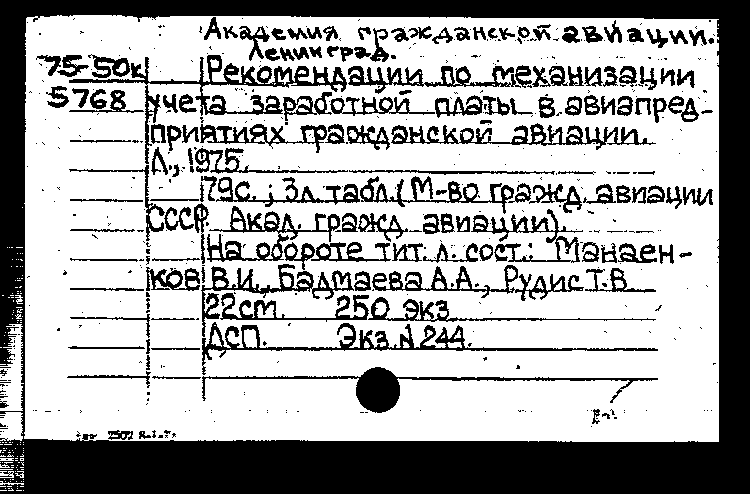 Академия гражданской авиации.
Ленинград.
75-50к Рекомендации по механизации
5768 учета заработной платы в авиапред-
приятиях гражданской авиации.
Л., 1975.
79с.; 3л. табл. (М-во гражд. авиации
СССР. Акад. гражд. авиации).
На обороте тит. л. сост.: Манаен-
ков В.И., Бадмаева А.А., Рудис Т.В.
22см. 250 экз.
ДСП. Экз. № 244.